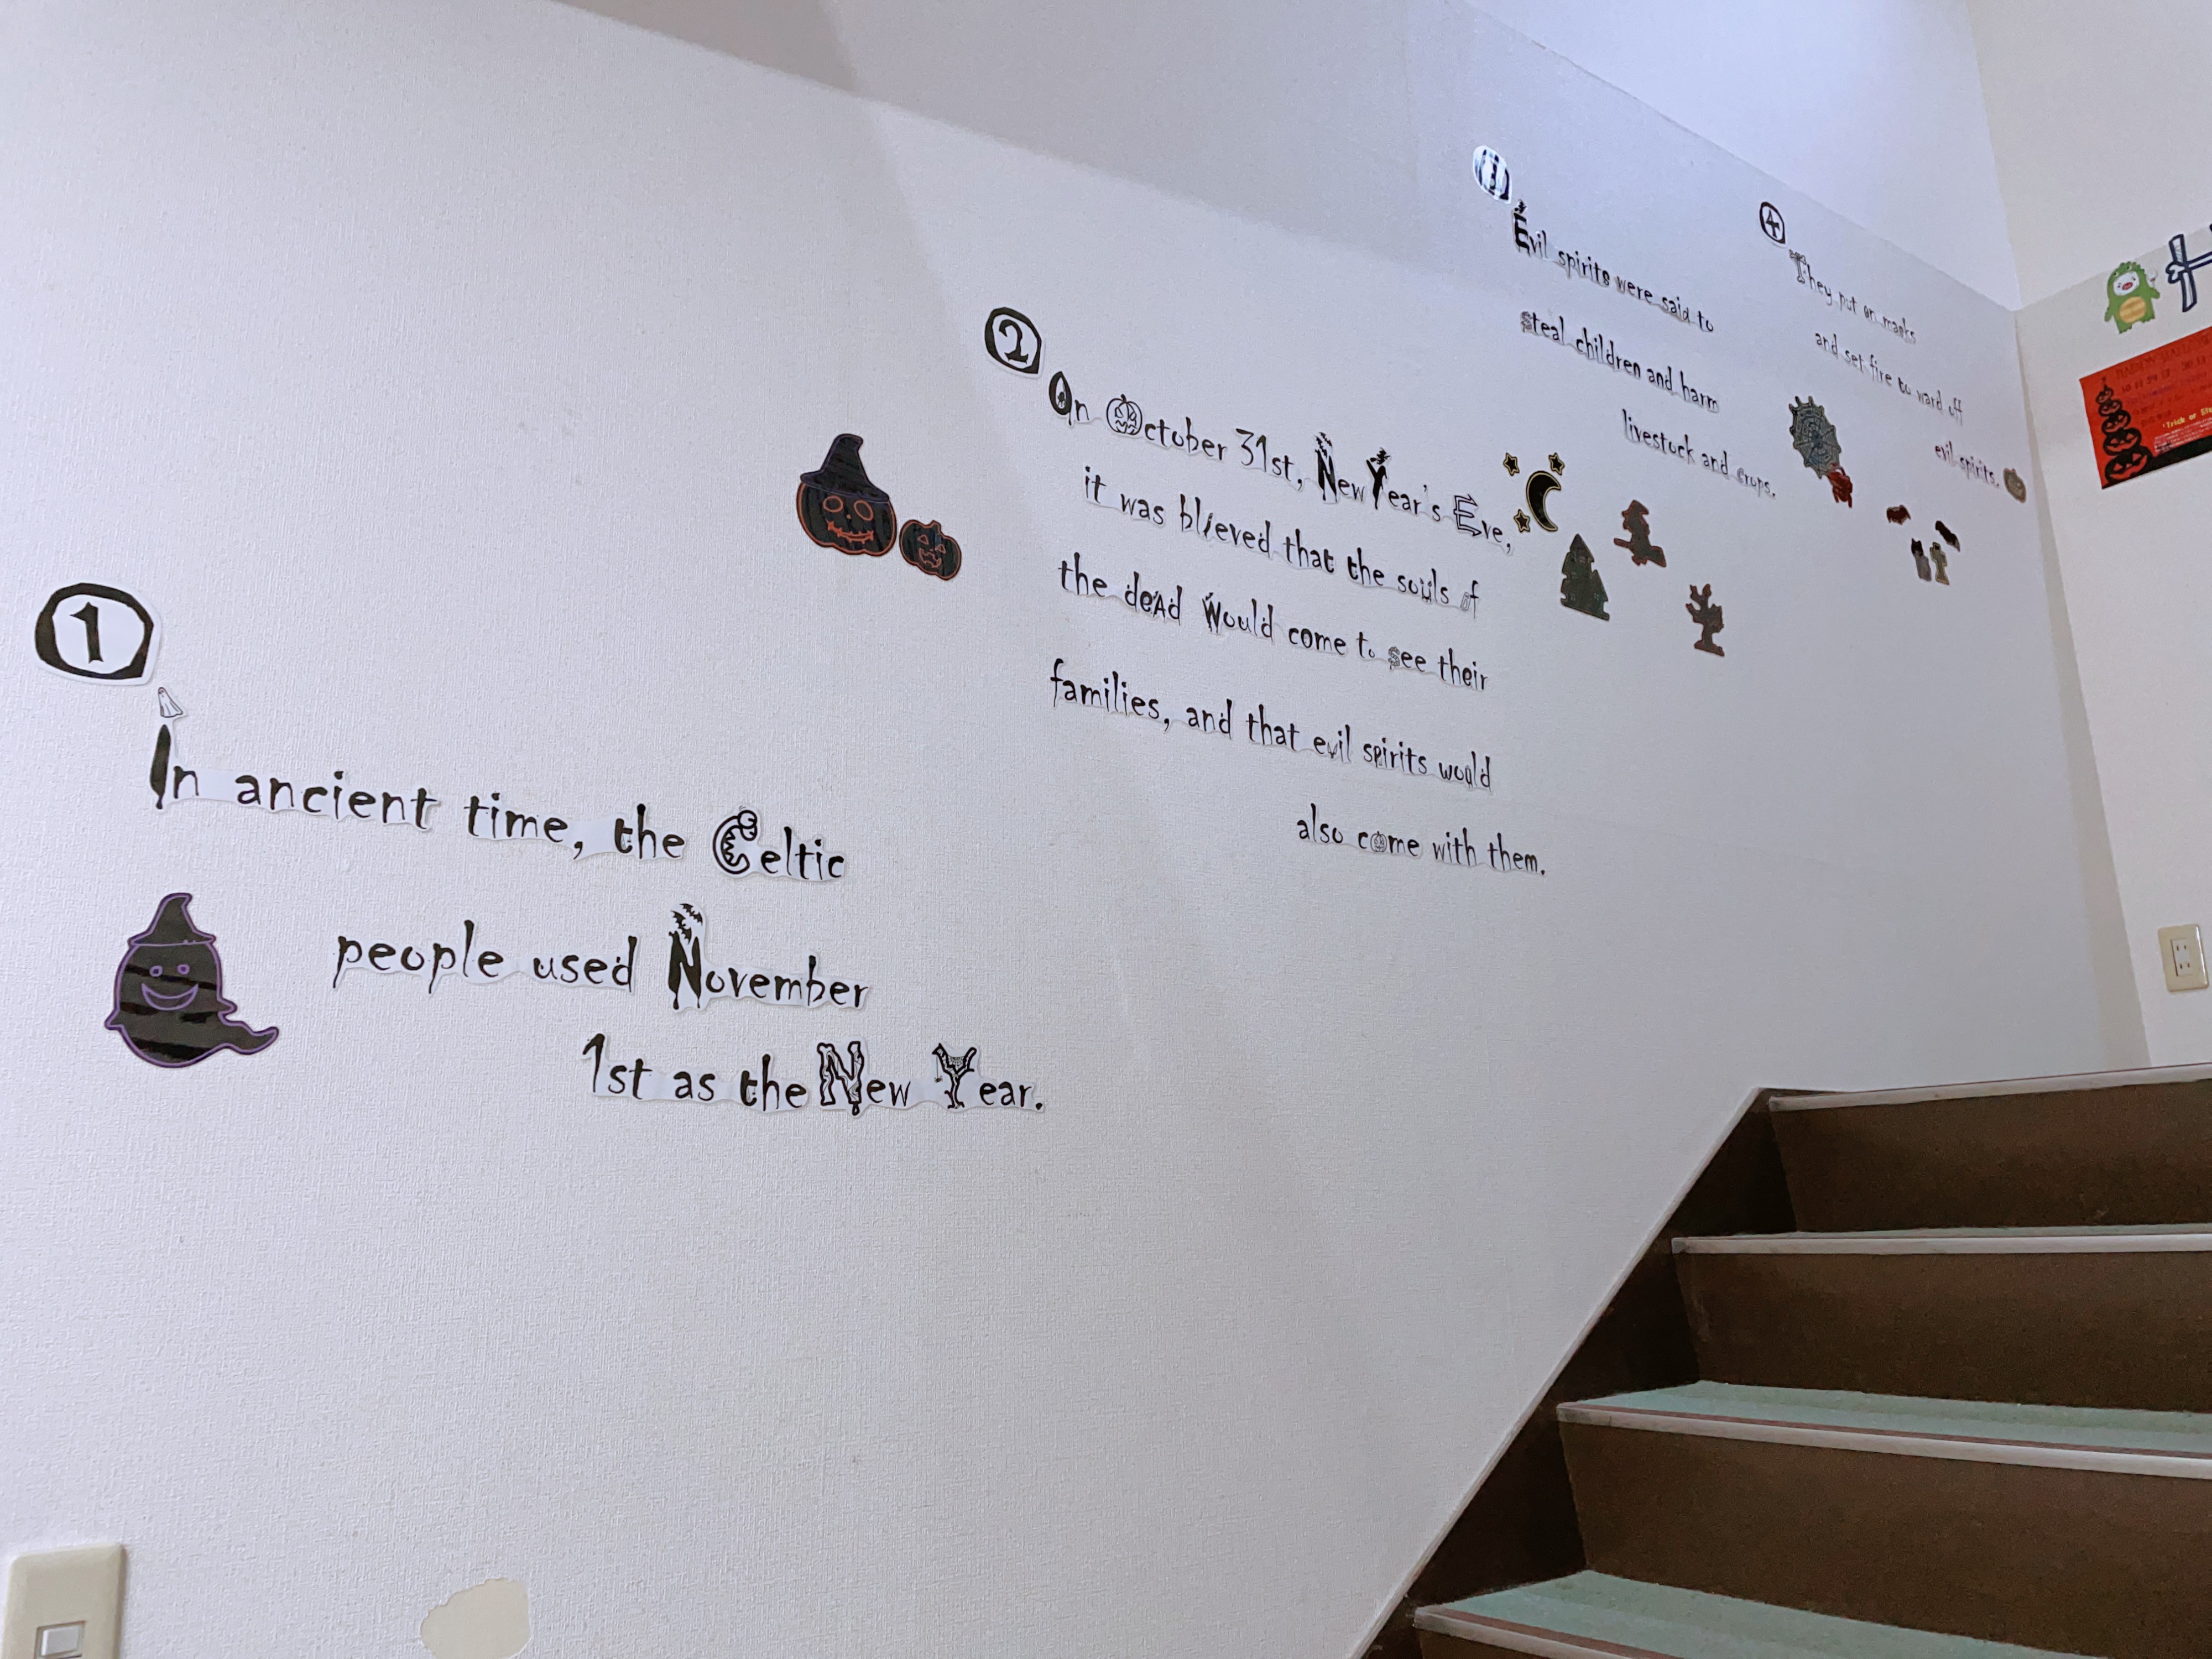 1
In ancient time, the Celtic
people used November
1st as the New Year.
2
On October 31st, New Year's Eve,
it was blieved that the souls of
the deAd Would come to see their
families, and that evil spirits would
also come with them.
3
Evil spirits were said to
steal children and harm
livestock and crops.
4
They put on masks
and set fire to ward off
evil spirits.
H
"Trick or